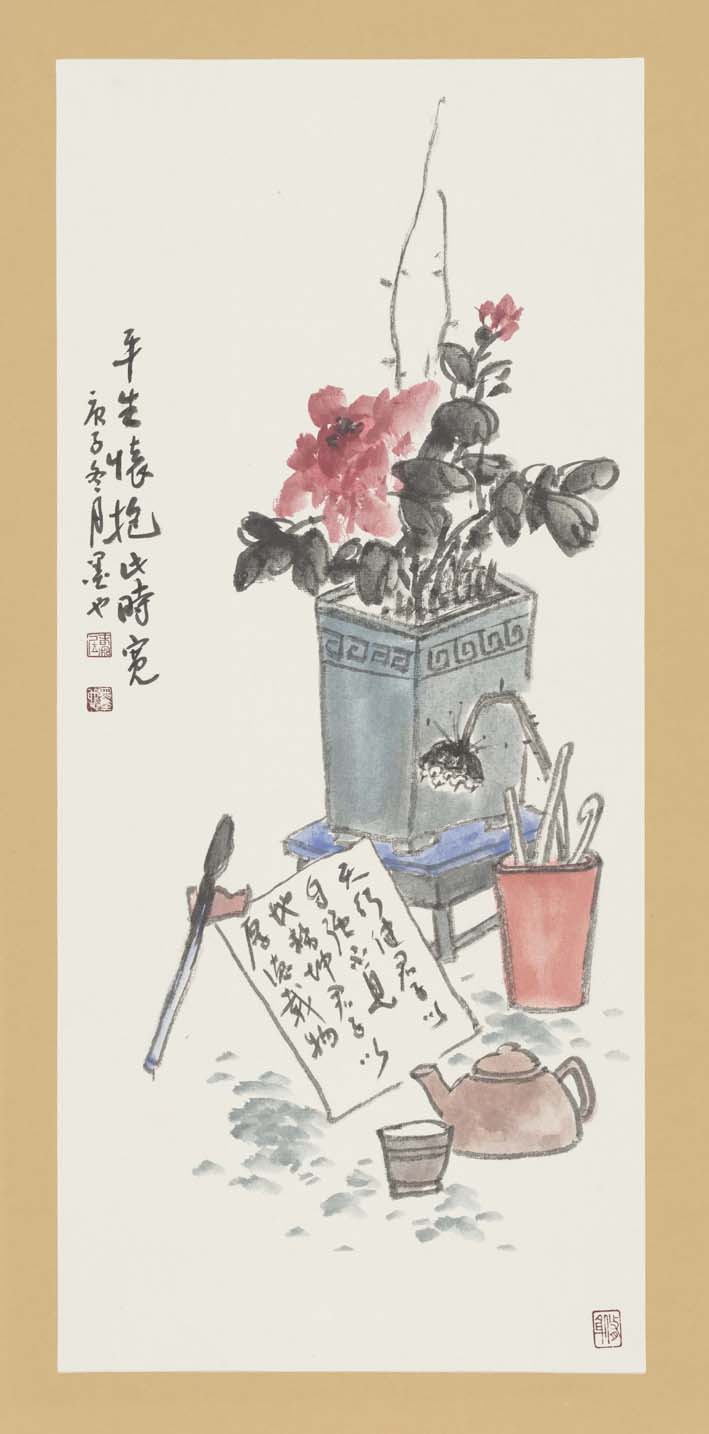 平生懷抱此時寬
庚子冬月墨也
天行健君子以
自強不息
地勢坤君子以
厚德載物